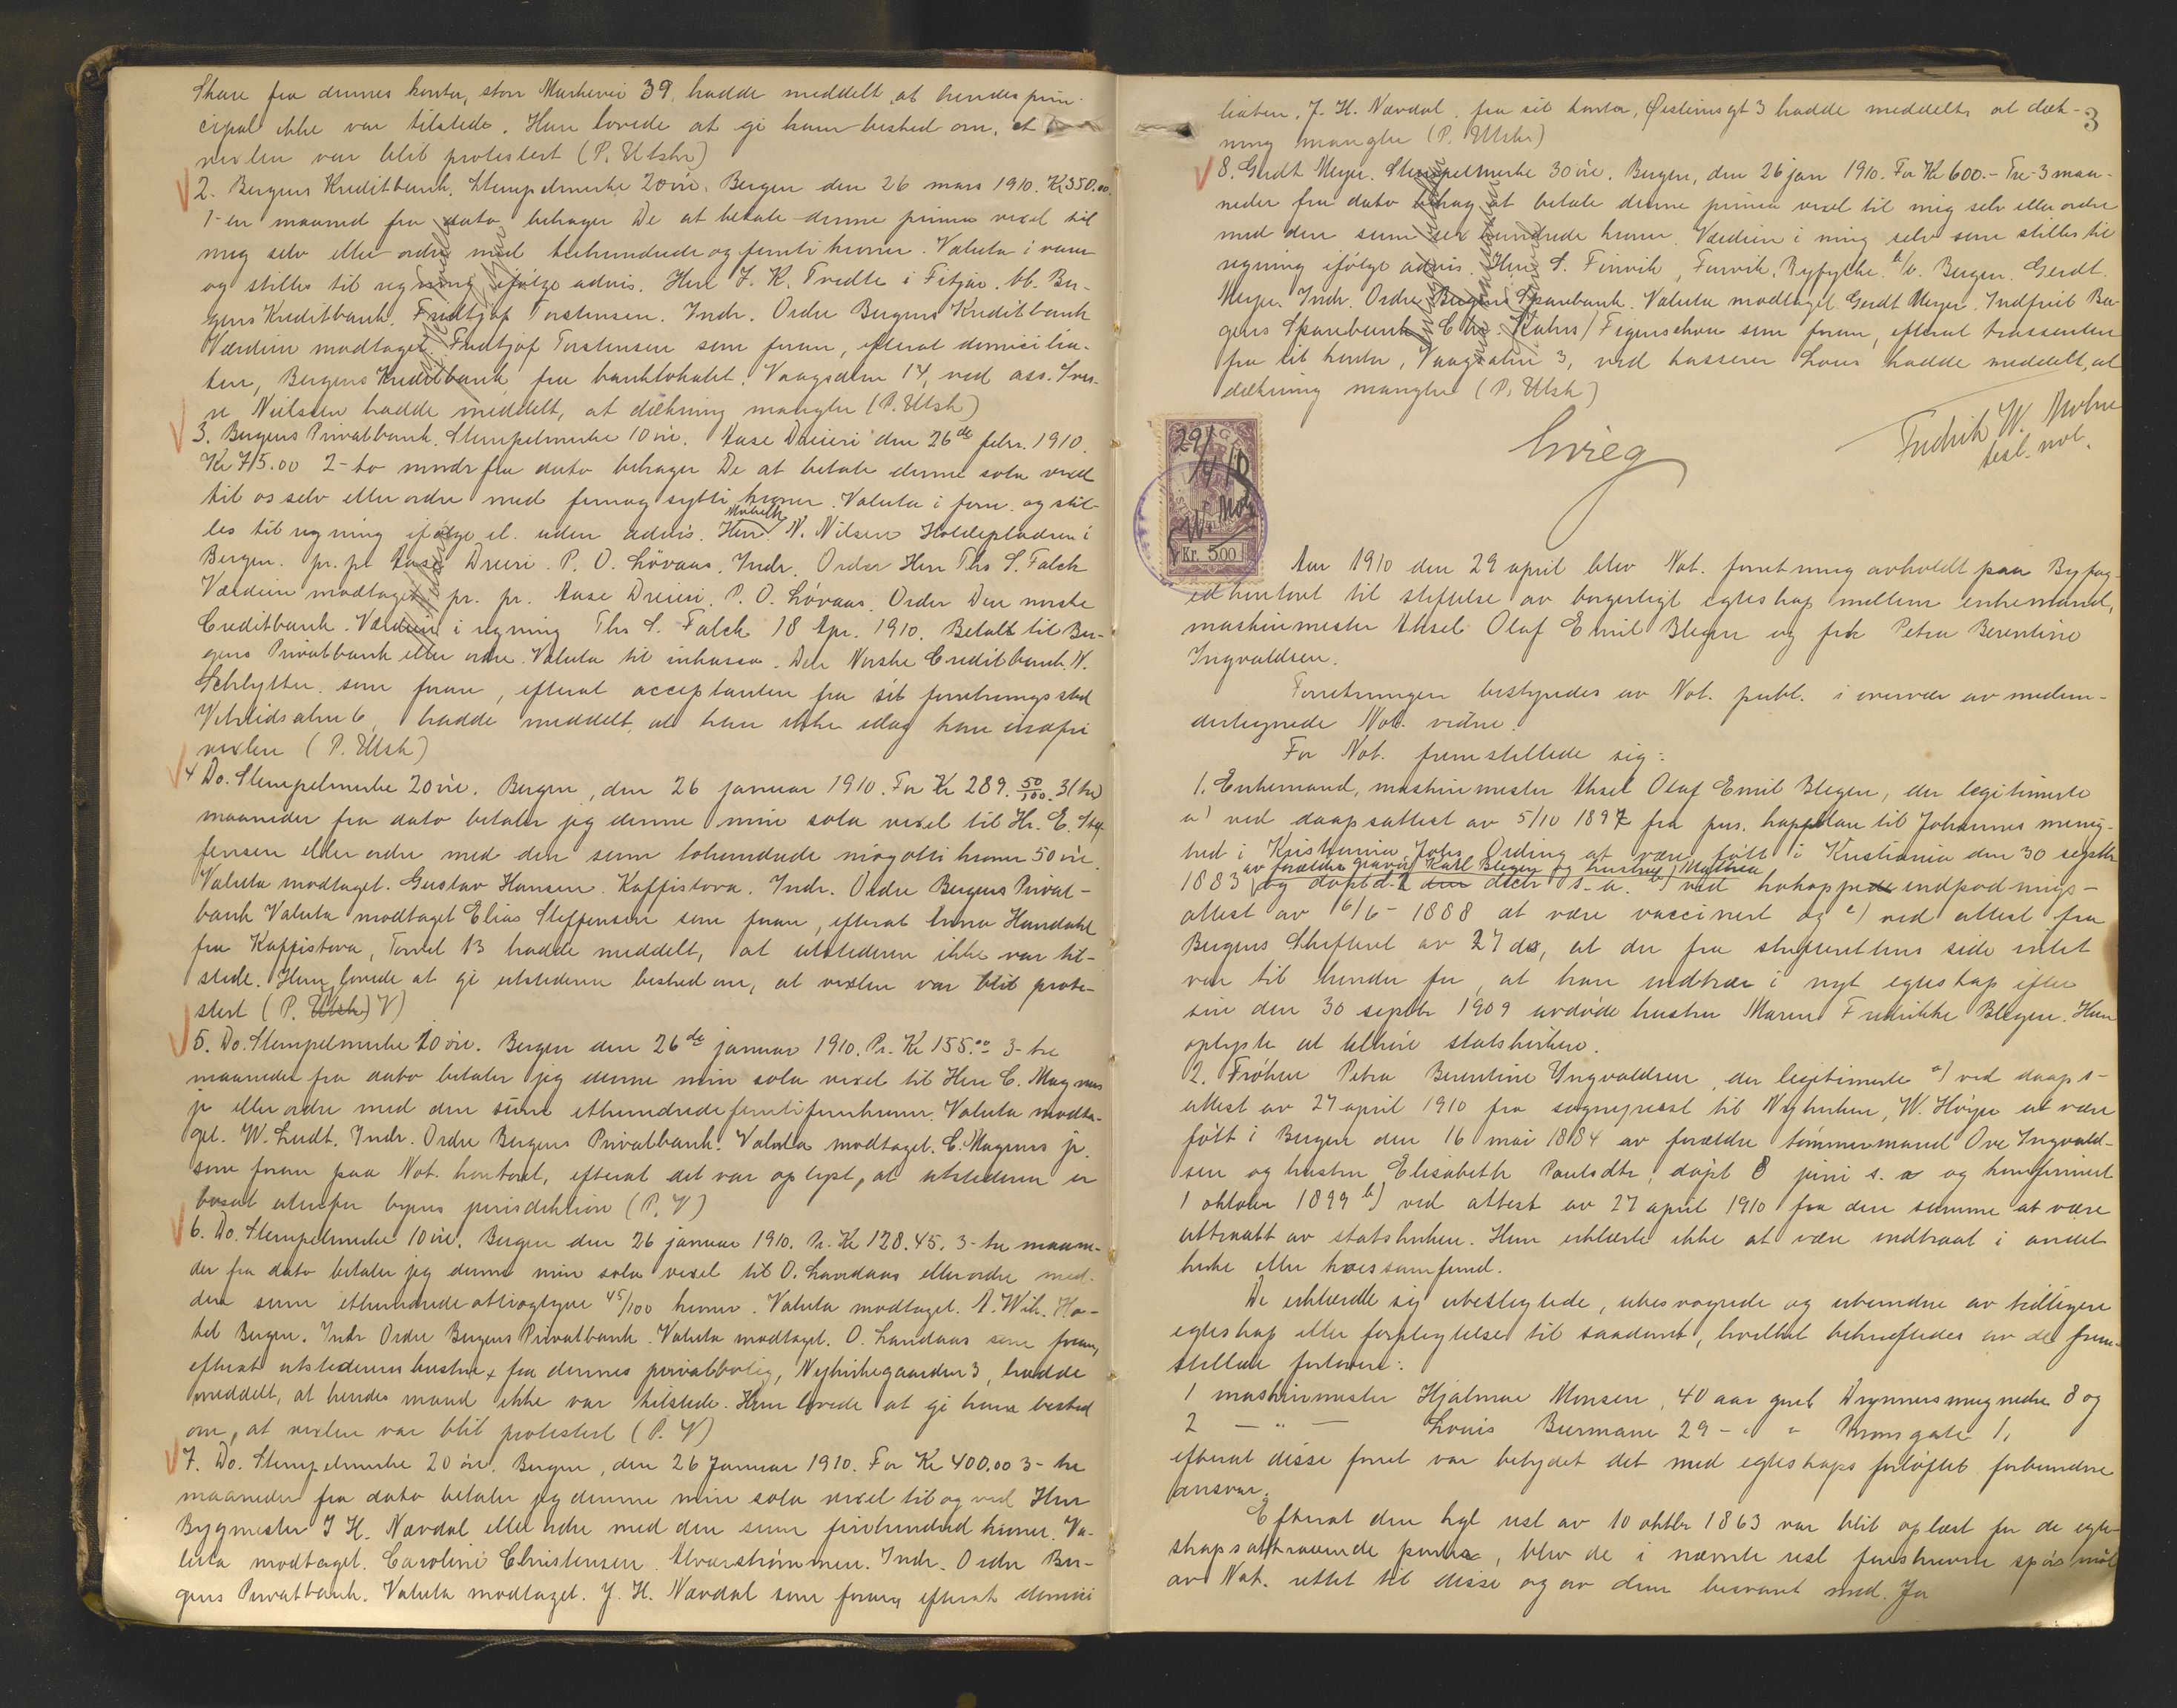 Skare fra dennes kontor, store Markevei 39, hadde meddelt, at hendes prin-
cipal ikke var tilstede. Hun lovede at gi ham besked om, at
vexlen var blit protestert (P. Utskr)
2. Bergens Kreditbank. Stempelmerke 20 öre. Bergen den 26 mars 1910. Kr 350.00.
1-en maaned fra dato behager De at betale denne prima vexel til
mig selv eller ordre med trehundrede og femti kroner. Valuta i vare
og stilles til regning ifölge advis. Herr J. K. Tvedte i Fitjar. bb. Ber-
gens Kreditbank. Fridtjof Torstensen. Indr. Ordre Bergens Kreditbank
Værdien modtaget. Fridtjof Torstensen som foran, efterat domicilia-
ten, Bergens Kreditbank fra banklokalet, Vaagsalm 14, ved ass. Iver-
n Nielsen hadde meddelt, at dækning mangler (P. Utskr)
3. Bergens Privatbank. Stempelmerke 10 öre. Aase Dreieri den 26de febr. 1910.
Kr 75.00 2-to mndr fra dato behager De at betale denne sola vexel
til os selv eller ordre med femog sytti kroner. Valuta i forr. og stil-
les til regning ifölge el. uden advis. Herr Möbelh. N. Nilsen Holdepladsen i
Bergen. pr. pr. Aase Dreieri. P. O. Lövaas. Indr. Ordre Herr Ths S. Falck
Værdien modtaget pr. pr. Aase Dreieri. P. O. Lövaas. Ordre Den norske
Creditbank. Værdien i regning Ths S. Falck 18 Apr. 1910. Betalt til Ber-
gens Privatbank eller ordre. Valuta til inkasso. Den Norske Creditbank. N.
Schlytter. som foran, efterat acceptanten fra sit forretningssted
Vetrlidsalm 6, hadde meddelt, at han ikke idag kan indfri
vexlen (P. Utsk)
4 Do. Stempelmerke 20 öre. Bergen, den 26 januar 1910. For Kr 289. 50/100. 3 (tre)
maaneder fra dato betaler jeg denne min sola vexel til Hr. E. Stef-
fensen eller ordre med den sum tohundrede niogotti kroner 50 öre
Valuta modtaget. Gustav Hansen. Kaffistova. Indr. Ordre Bergens Privat-
bank Valuta modtaget Elias Steffensen som foran, efterat Anna Handahl
fra Kaffistova, Torvet 13 hadde meddelt, at utstederen ikke var til-
stede. Hun lovede at gi utstederen besked om, at vexlen var blit prote-
stert (P. Utskr) V)
5. Do. Stempelmerke 10 öre. Bergen den 26de januar 1910. Pr. Kr 155.00 3-tre
maaneder fra dato betaler jeg denne min sola vexel til Herr C. Magnus
jr eller ordre med den sum ethundrede femtifem kroner. Valuta modta-
get. W. Ludt. Indr. Ordre Bergens Privatbank. Valuta modtaget. C. Magnus jr.
som foran paa Not. kontoret, efterat det var oplyst, at utstederen er
bosat utenfor byens jurisdiktion (P. V)
6. Do. Stempelmerke 10 öre. Bergen den 26 januar 1910. Pr. Kr 128.45. 3-tre maane-
der fra dato betaler jeg denne min sola vexel til O. Landaas eller ordre med
den sum ethundrede otteogtyve 45/100 kroner. Valuta modtaget. A. Wik. Ho-
tel Bergen. Indr Ordre Bergens Privatbank. Valuta modtaget. O. Landaas som foran,
efterat utstederens hustru, fra dennes privatbolig, Nykirkegaarden 3, hadde
meddelt, at hendes mand ikke var tilstede. Hun lovede at gi ham besked
om, at vexlen var blit protestert (P. V)
7. Do. Stempelmerke 20 öre. Bergen, den 26 Januar 1910. For Kr 400.00 3-tre
maaneder fra dato betaler jeg denne min sola vexel til og ved Herr
Bygmester J H. Nævdal eller ordre med den sum firehundred kroner. Va-
luta modtaget. Caroline Christensen. Alverströmmen. Indr. Ordre Ber-
gens Privatbank. Valuta modtaget. J. H. Nævdal som foran, efterat domici
3
liaten, J. H. Nævdal, fra sit kontor, Østeinsgt 3 hadde meddelt, at dæk-
ning mangler (P. Utskr)
8. Gerdt Meyer. Stempelmerke 30 öre. Bergen, den 26 jan 1910. For Kr 600.- Tre-3 maa-
neder fra dato behag at betale denne prima vexel til mig selv eller ordre
med den sum sex hundrede kroner. Værdien i mig selv som stilles til
regning ifölge advis. Herr S. Finvik, Finvik, Ryfylke. Bergen. Gerdt
Meyer. Indr. Ordre Bergens Sparebank. Valuta modtaget. Gerdt Meyer. Indfriet Ber-
gens Sparebank Chr. Kahrs / Figenschou som foran, efterat trassenten
fra sit kontor, Vaagsalm 3, ved kasserer Lous hadde meddelt, at
dækning mangler (P. Utsk)
Fredrik W. Mohn
best. not.
Grieg
29/4 10
W. Mohn
Kr. 5.00
Aar 1910 den 29 april blev Not. forretning avholdt paa Byfog-
edkontoret til stiftelse av borgerligt egteskap mellem enkemand,
maskinmester Aksel Olaf Emil Blegen og frk Petra Berentine
Ingvaldsen.
Forretningen bestyredes av Not. publ. i overvær av meden-
dertegnede Not. vidne.
For Not. fremstillede sig:
1. Enkemand, maskinmester Aksel Olaf Emil Blegen, der legitimerte
a) ved daapsattest av 5/10 1897 fra pers. kappelan til Johannes menig-
hed i Kristiania Johs Ording at være født i Kristiania den 30 septbr
av forældre gravør Karl Blegen og hustru Mathea
1883 og døpt d. 2 decbr s. a. b) ved kokoppeindpodnings-
attest av 6/6 - 1888 at være vaccinert og c) ved attest fra
Bergens Skifteret av 27 ds, at der fra skifterettens side intet
var til hinder for, at han indtræder i nyt egteskap efter
sin den 30 septbr 1909 avdøde hustru Maren Fredrikke Blegen. Han
oplyste at tilhöre statskirken.
2. Fröken Petra Berentine Yngvaldsen, der legitimerte a) ved daaps-
attest av 27 april 1910 fra sogneprest til Nykirken, W. Höyer at være
fött i Bergen den 16 mai 1884 av forældre tömmermand Ove Ingvald-
sen og hustru Elisabeth Paulsdtr, döpt 8 juni s. a og konfirmert
1 oktober 1899 b) ved attest av 27 april 1910 fra den samme at være
uttraatt av statskirken. Hun erklærte ikke at være indtraat i andet
kirke eller troessamfund.
De erklærede sig ubeslegtede, ubesvogrede og ubundne av tidligere
egteskap eller forpligtelse til saadant, hvilket bekræftedes av de frem-
stillede forlovere:
1 maskinmester Hjalmar Monsen, 40 aar gml Dynnersmug nedre 8 og
2 — " — Louis Biermann 29 - " " Kroosgate 1,
efterat disse forut var betydet det med egteskaps forlöftet forbundne
ansvar.
Efterat den kgl. resl av 10 oktbr 1863 var blit oplæst for de egte-
skapsattraaende parter, blev de i nævnte resl foreskrevne spörsmål
av Not. rettet til disse og av dem besvaret med. Ja